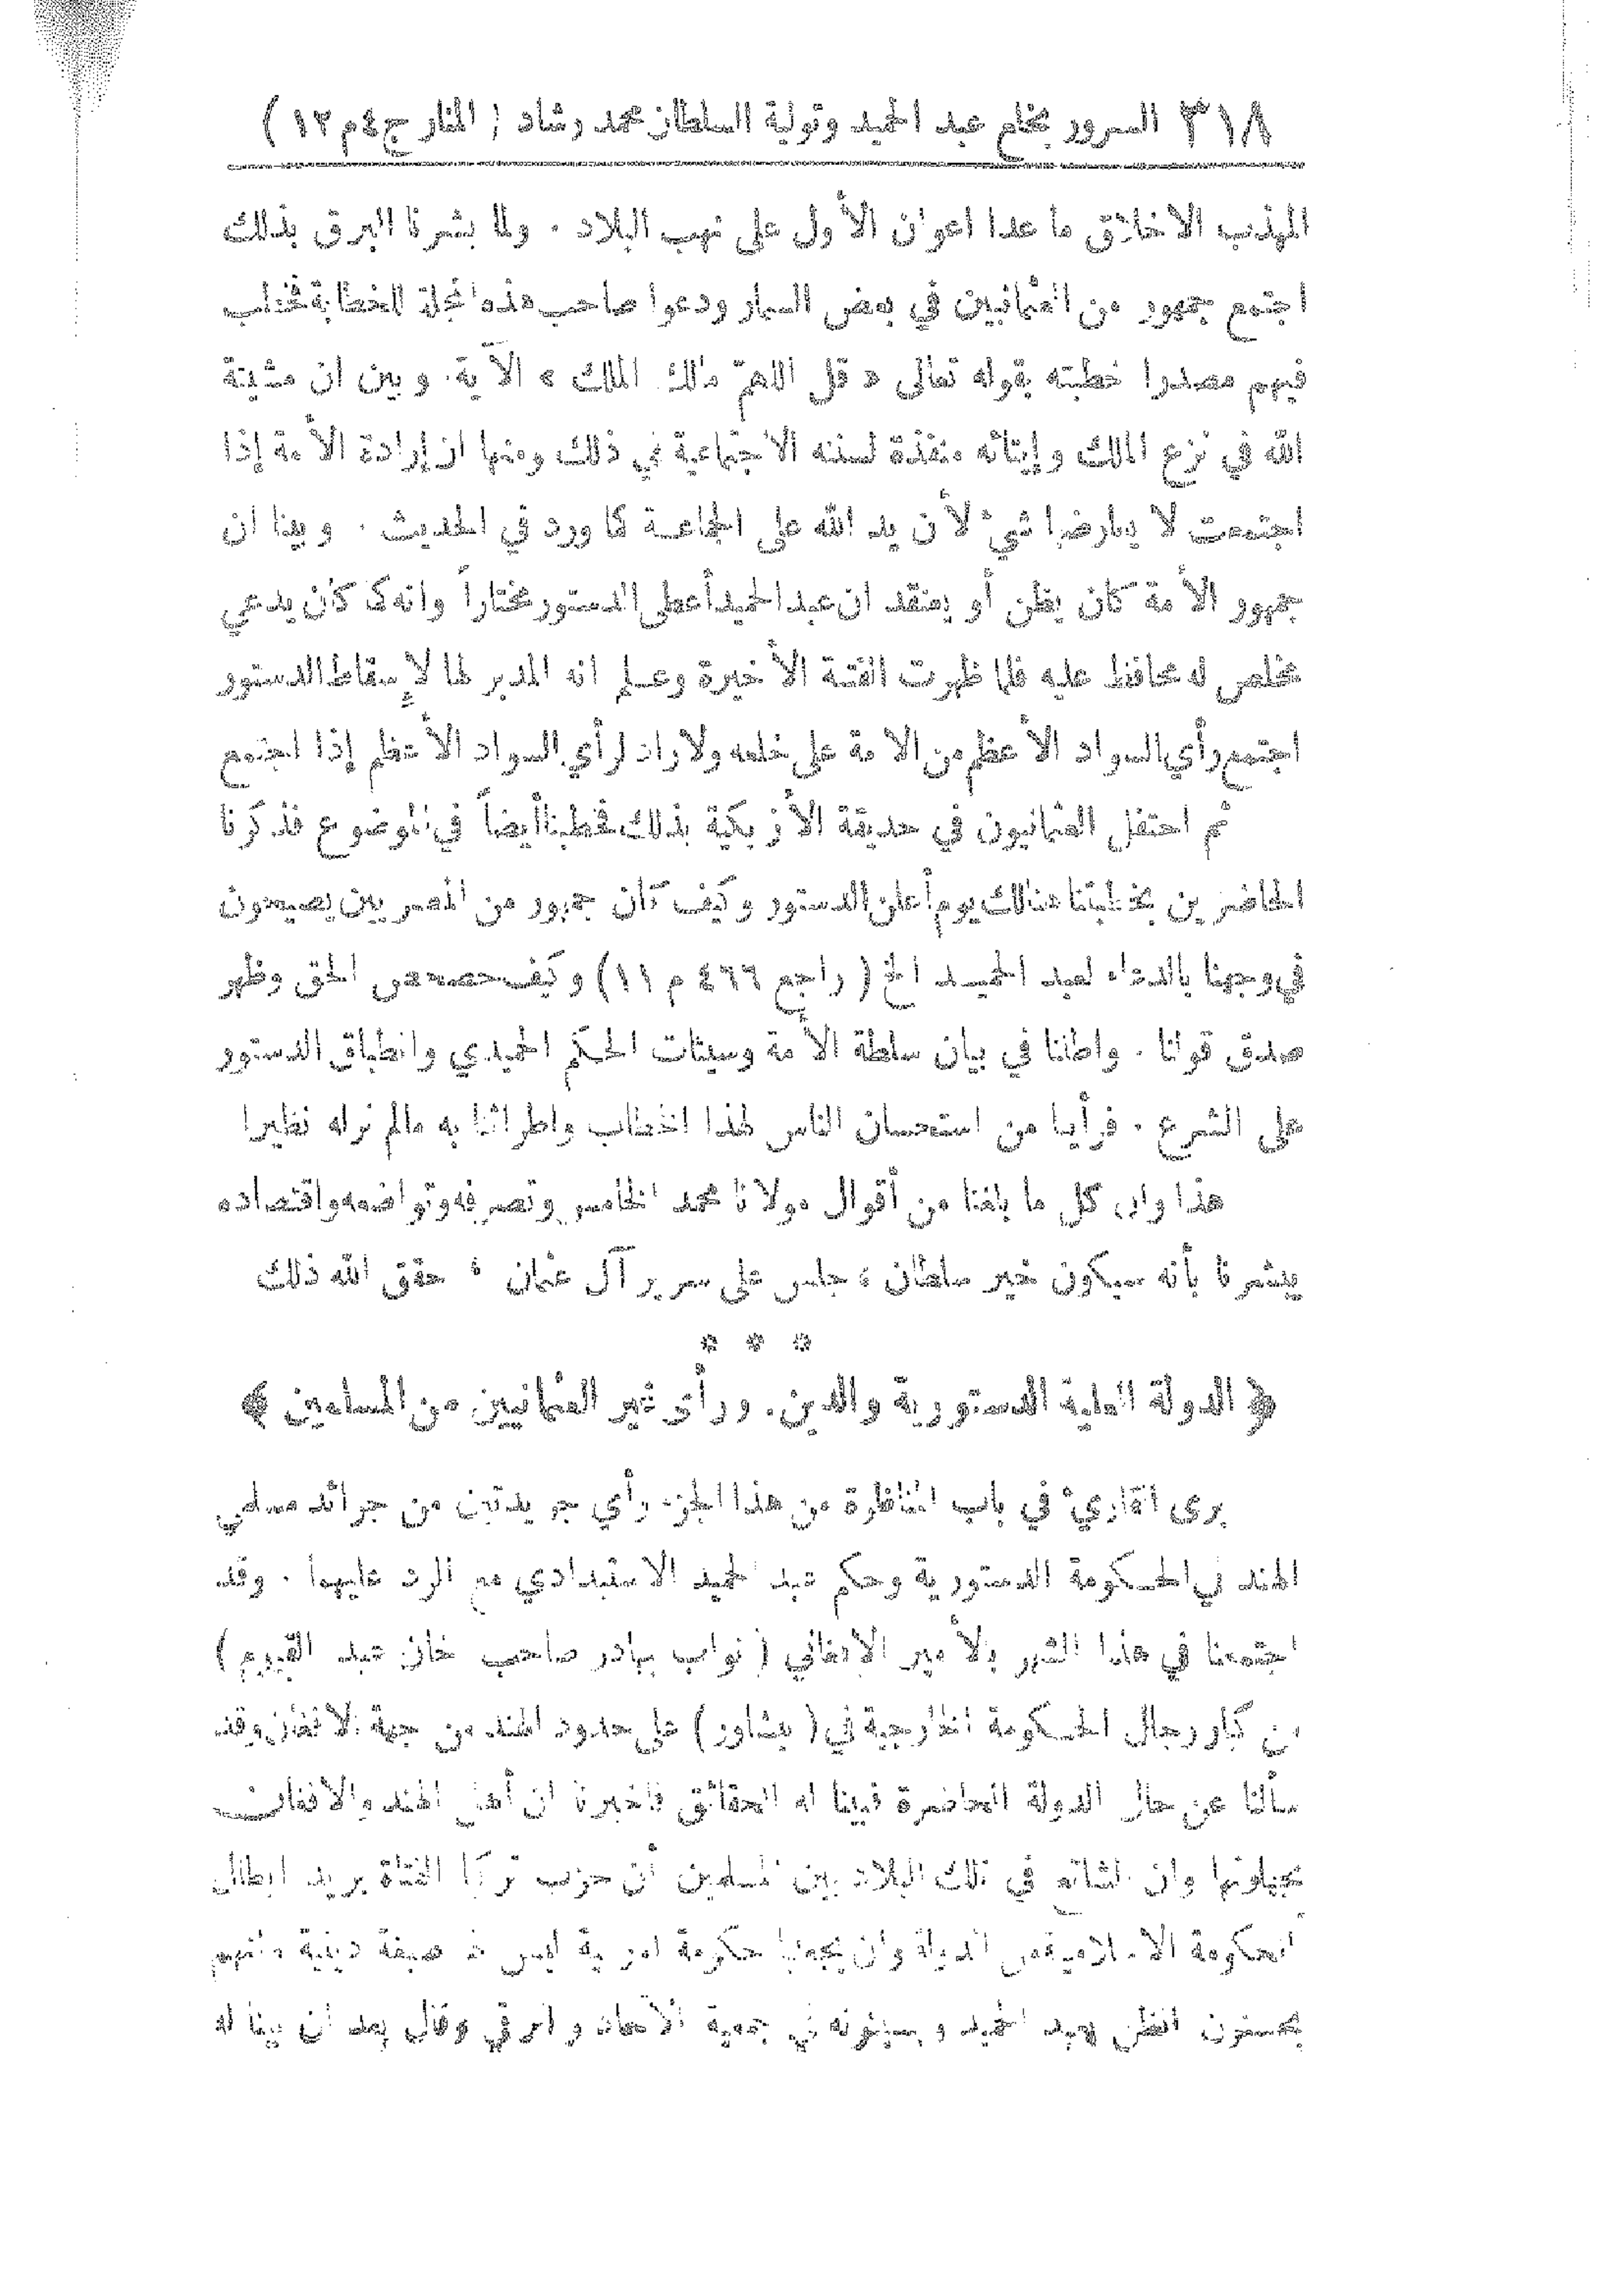 ٣١٨ السرور بخلع عبد الحميد وتولية السلطان محمد رشاد ( المنار ج ٤ م ١٢ )
المهذب الاخلاق ما عدا اعوان الأول على نهب البلاد . ولما بشرنا البرق بذلك
اجتمع جمهور من العثمانيين في بعض السمار ودعوا صاحب هذه المجلة للخطابة فخطب
فيهم مصدرا خطبته بقوله تعالى « قل اللهمّ مالك الملك » الآية . وبين ان مشيئة
الله في نزع الملك وإيتائه منفذة لسننه الاجتماعية في ذلك ومنها ان إرادة الأمة إذا
اجتمعت لا يعارضها شيء لأن يد الله على الجماعة كما ورد في الحديث . وبينا ان
جمهور الأمة كان يظن أو يعتقد ان عبد الحميد أعطى الدستور مختاراً وانه كما كان يدعي
مخلص له محافظ عليه فلما ظهرت الفتنة الأخيرة وعلم انه المدبر لها لإسقاط الدستور
اجتمع رأي السواد الأعظم من الامة على خلعه ولا راد لرأي السواد الأعظم إذا اجتمع
ثم احتفل العثمانيون في حديقة الأزبكية بذلك فخطبنا أيضاً في الموضوع فذكرنا
الحاضرين بخطبتنا هنالك يوم أعلن الدستور وكيف كان جمهور من المصريين يصيحون
في وجهنا بالدعاء لعبد الحميد الخ ( راجع ٤٦٦ م ١١ ) وكيف حصحص الحق وظهر
صدق قولنا . واطلنا في بيان سلطة الأمة وسيئات الحكم الحميدي وانطباق الدستور
على الشرع . فرأينا من استحسان الناس لهذا الخطاب واطرائنا به مالم نر له نظيرا
هذا وان كل ما بلغنا من أقوال مولانا محمد الخامس وتصرفه وتواضعه واقتصاده
يبشرنا بأنه سيكون خير سلطان ، جلس على سرير آل عثمان ، حقق الله ذلك
* * *
﴿ الدولة العلية الدستورية والدين . ورأي غير العثمانيين من المسلمين ﴾
يرى القاريء في باب المناظرة من هذا الجزء رأي جريدتين من جرائد مسلمي
الهند في الحكومة الدستورية وحكم عبد الحميد الاستبدادي مع الرد عليهما . وقد
اجتمعنا في هذا الشهر بالأمير الافغاني ( نواب بهادر صاحب خان عبد القيوم )
من كبار رجال الحكومة الخارجية في ( بيشاور ) على حدود الهند من جهة الافغان وقد
سألنا عن حال الدولة الحاضرة فبينا له الحقائق فاخبرنا ان أهل الهند والافغان
يجهلونها وان الشائع في تلك البلاد بين المسلمين أن حزب تركيا الفتاة يريد ابطال
الحكومة الاسلامية من الدولة وان يجعلها حكومة ليس صبغة دينية
يحسنون الظن بعبد الحميد ويسيئونه في جمعية الاتحاد والترقي وقال بعد ان بينا له